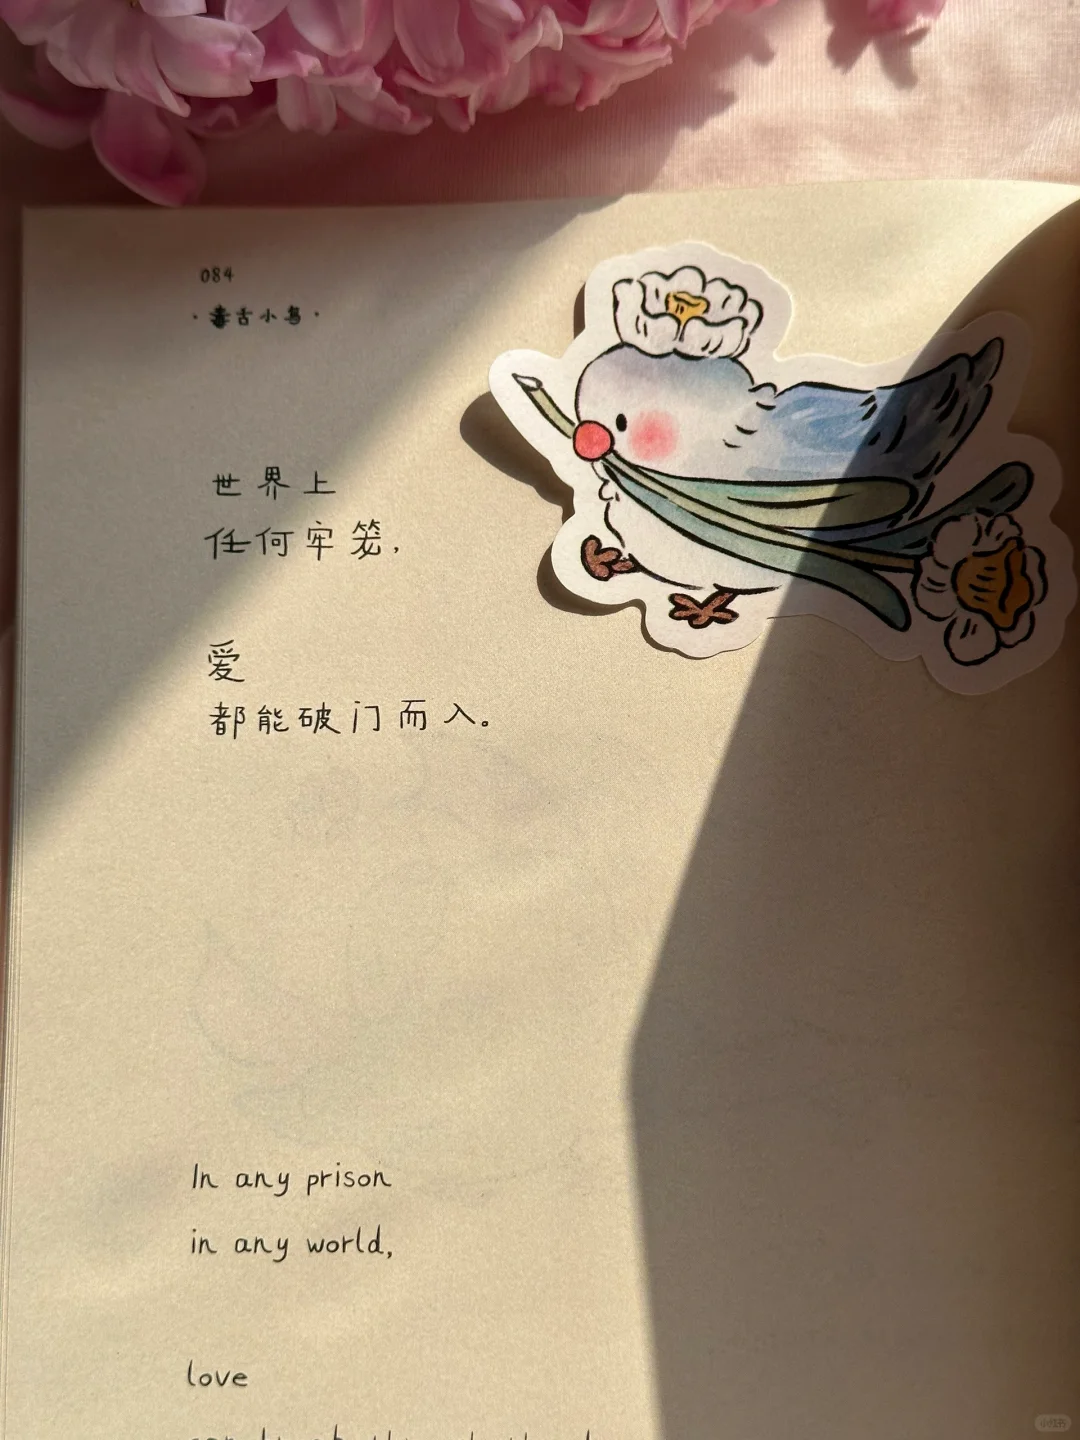 084
·毒舌小鸟·
世界上
任何牢笼，
爱
都能破门而入。
In any prison
in any world,
love
小红书